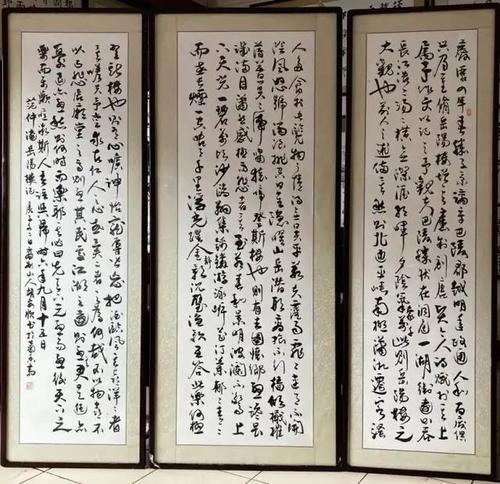 慶曆四年春滕子京謫守巴陵郡越明年政通人和百廢俱
興乃重修岳陽樓增其舊制刻唐賢今人詩賦於其上
屬予作文以記之予觀夫巴陵勝狀在洞庭一湖銜遠山吞
長江浩浩湯湯橫無際涯朝暉夕陰氣象萬千此則岳陽樓之
大觀也前人之述備矣然則北通巫峽南極瀟湘遷客騷
人多會於此覽物之情得無異乎若夫霪雨霏霏連月不開
陰風怒號濁浪排空日星隱曜山岳潛形商旅不行檣傾楫摧
薄暮冥冥虎嘯猿啼登斯樓也則有去國懷鄉憂讒畏
譏滿目蕭然感極而悲者矣至若春和景明波瀾不驚上
下天光一碧萬頃沙鷗翔集錦鱗游泳岸芷汀蘭郁郁青青
而或長煙一空皓月千里浮光躍金靜影沉璧漁歌互答此樂何極
登斯樓也則有心曠神怡寵辱偕忘把酒臨風其喜洋洋者
矣嗟夫予嘗求古仁人之心或異二者之為何哉不以物喜不
以己悲居廟堂之高則憂其民處江湖之遠則憂其君是進亦
憂退亦憂然則何時而樂耶其必曰先天下之憂而憂後天下之
樂而樂歟噫微斯人吾誰與歸時六年九月十五日
范仲淹岳陽樓記